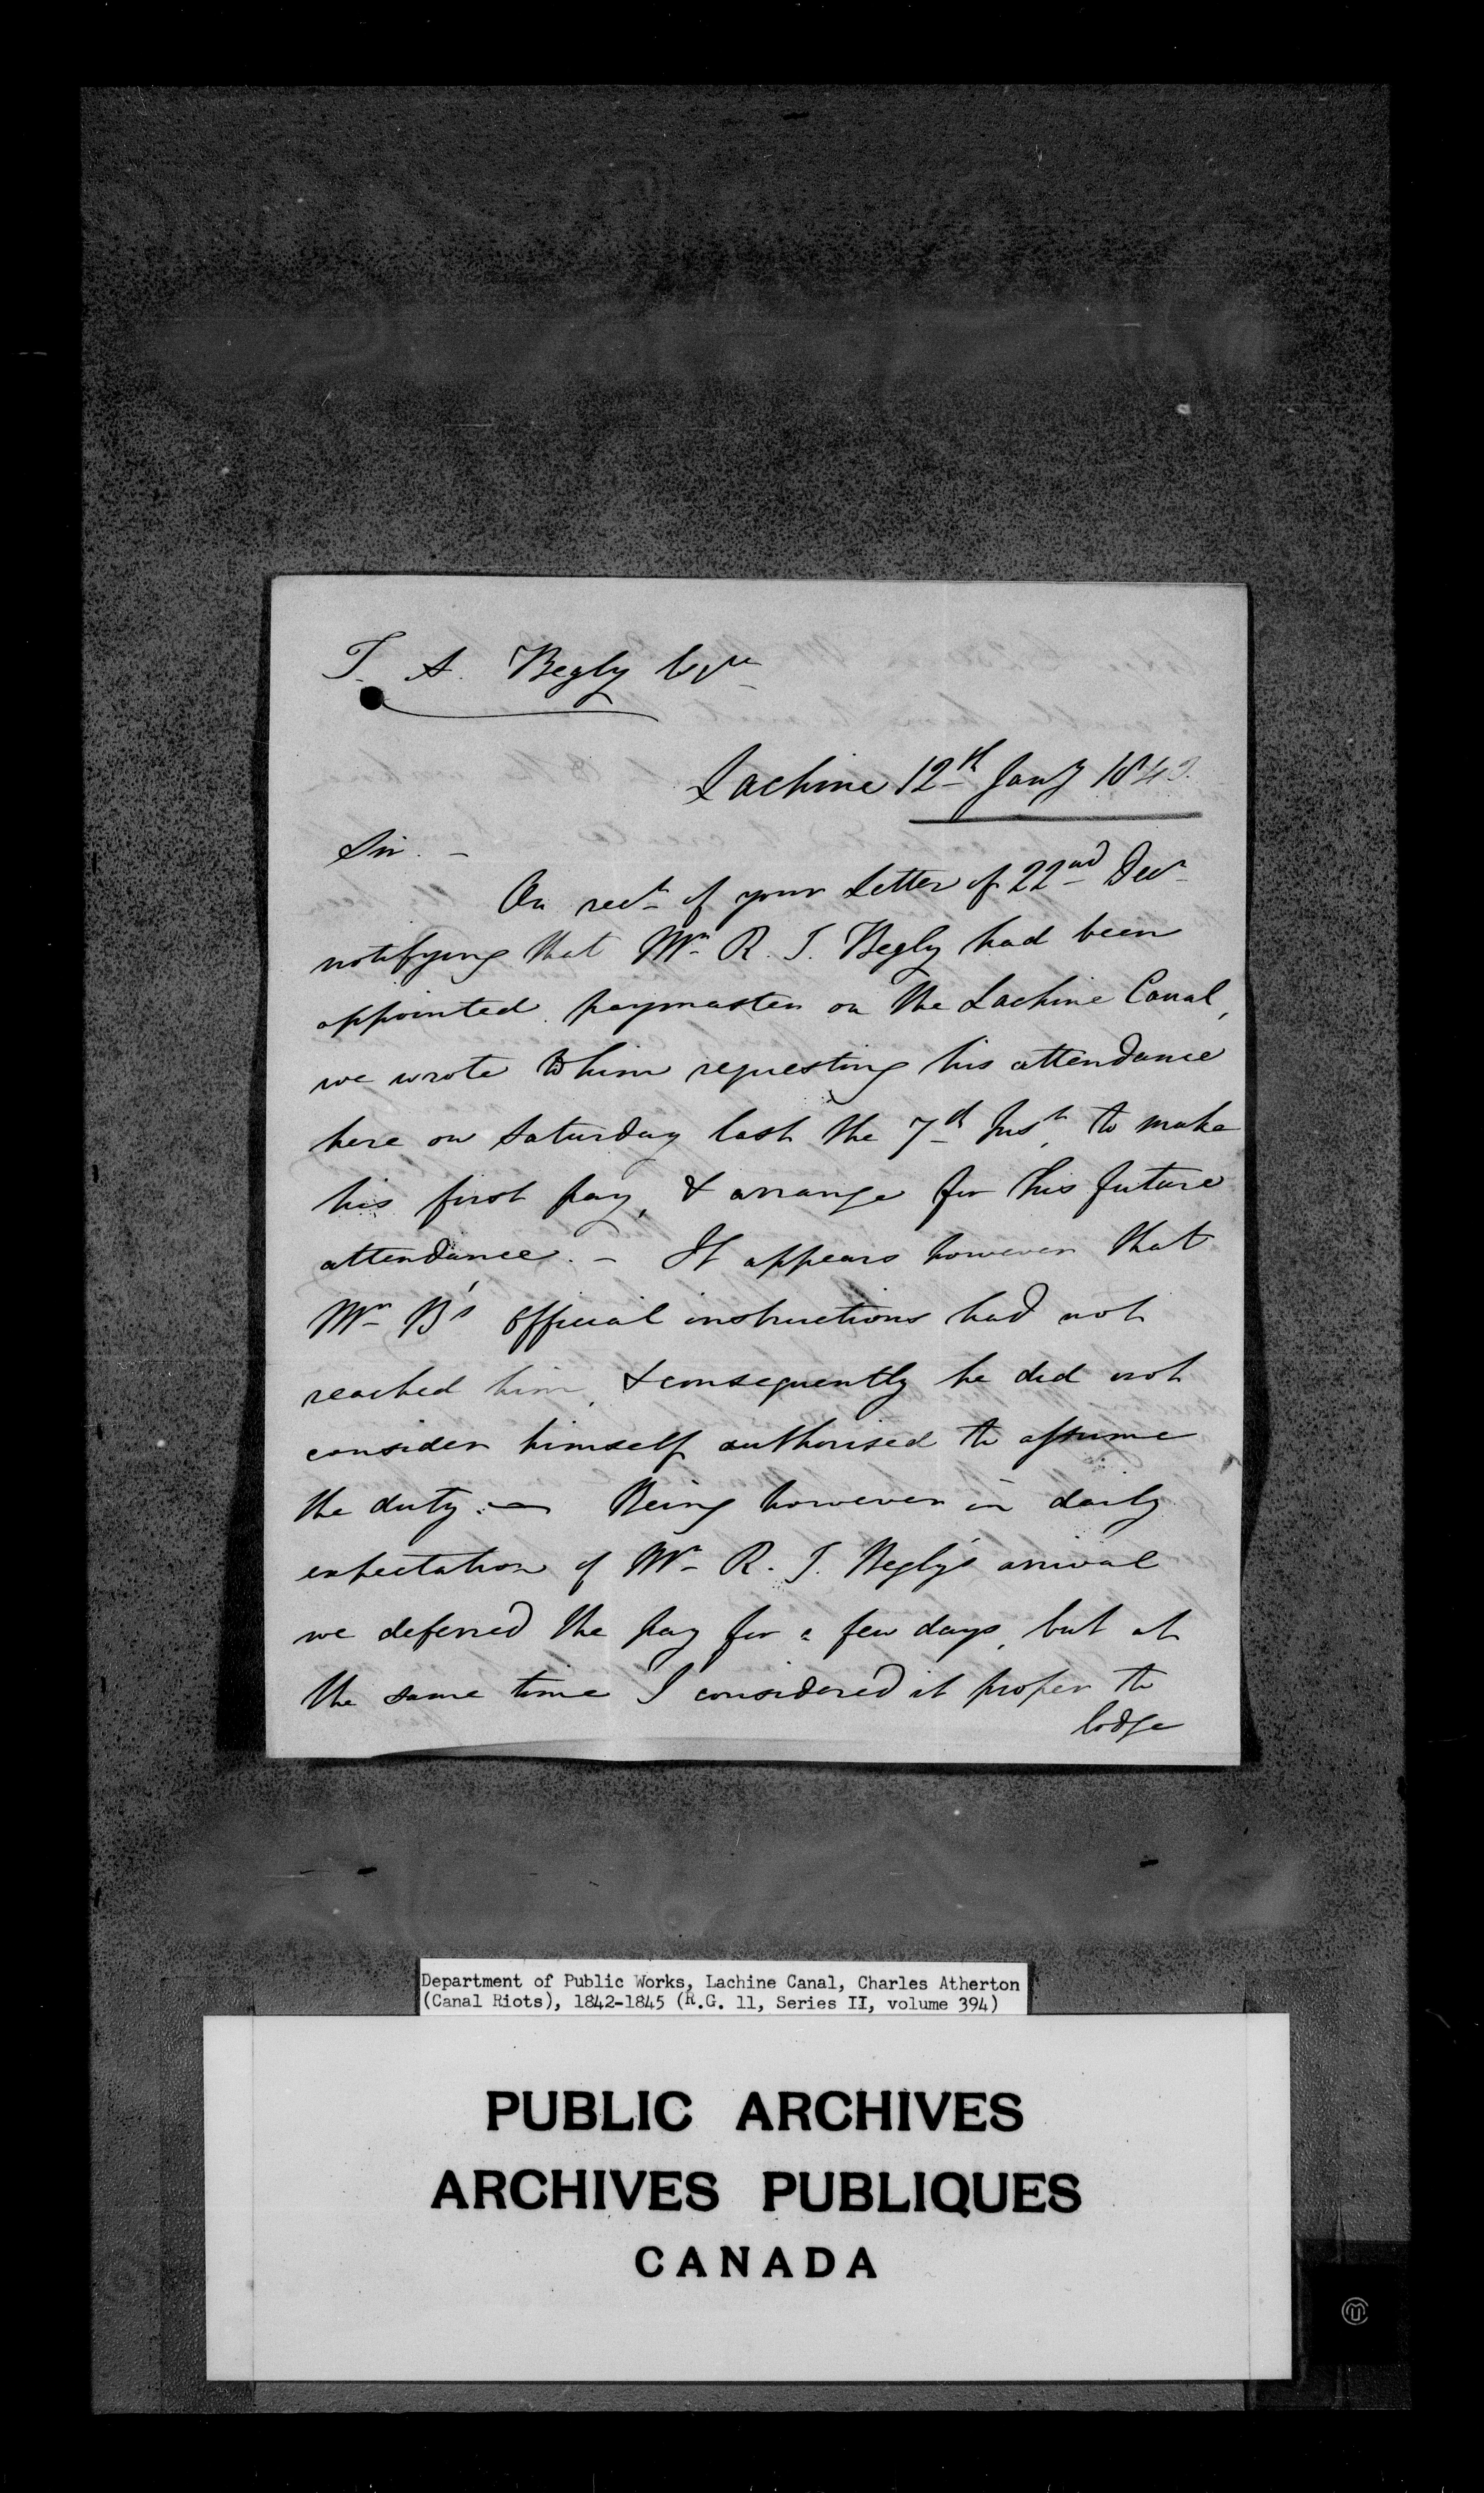 T. A. Begly Esqre
Lachine 12th Jany 1843.
Sir. –
On rect of your Letter of 22nd Decr
notifying that Mr R. J. Begly had been
appointed paymaster on the Lachine Canal,
we wrote to him requesting his attendance
here on Saturday last the 7th Inst, to make
his first pay, & arrange for his future
attendance. – It appears however that
Mr B's official instructions had not
reached him, & consequently he did not
consider himself authorised to assume
the duty. — Being however in daily
expectation of Mr R. J. Begly's arrival
we deferred the pay for a few days, but at
the same time I considered it proper to
lodge
Department of Public Works, Lachine Canal, Charles Atherton
(Canal Riots), 1842-1845 (R.G. 11, Series II, volume 394)
PUBLIC ARCHIVES
ARCHIVES PUBLIQUES
CANADA